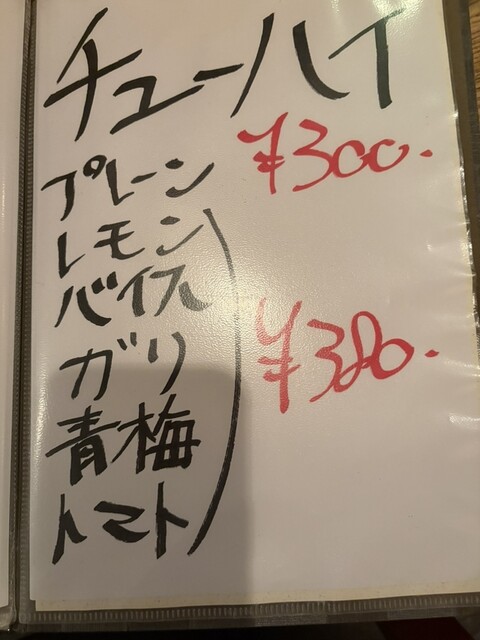 チューハイ
プレーン ¥300.
レモン
バイス
ガリ ¥380.
青梅
トマト